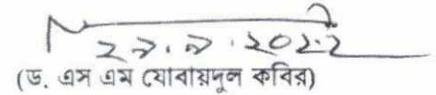 ২৯.৯.২০২২
(ড. এস এম যোবায়দুল কবির)